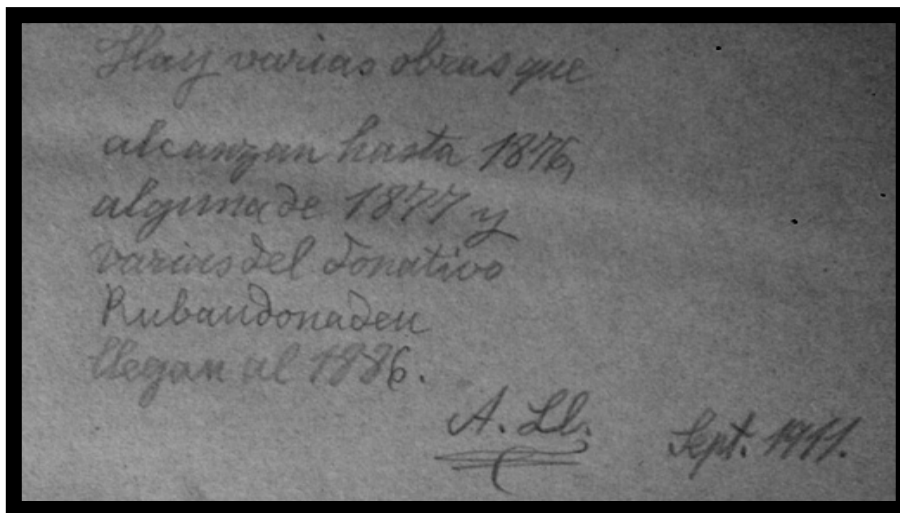 Hay varias obras que
alcanzan hasta 1876,
alguna de 1877 y
varias del donativo
Rubaudonadeu
llegan al 1886.
A. Ll. Sept. 1911.